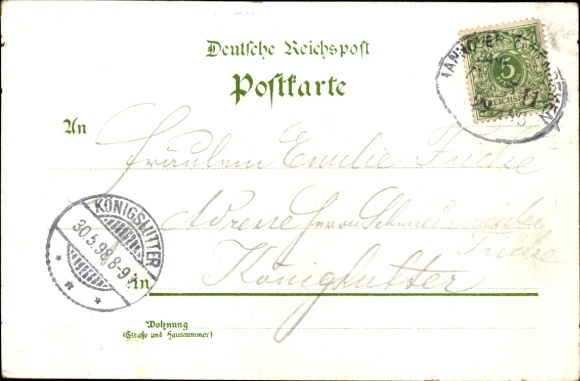 Deutsche Reichspost
Postkarte
An
Fräulein Emilie Fricke
Adresse Herrn
Fricke
in Königslutter
Wohnung
(Straße und Hausnummer)
5
REICHSPOST
HANNOVER BREMEN
KÖNIGSLUTTER
30.5.98 8-9